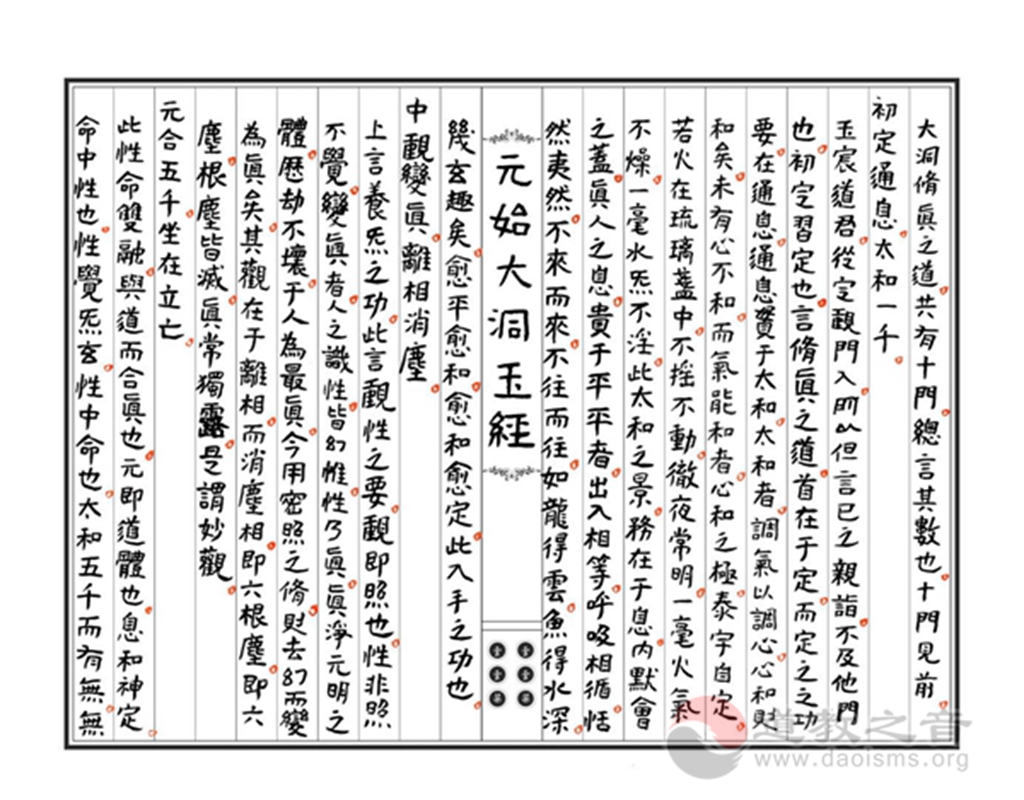 大洞脩眞之道共有十門總言其數也十門見前
初定通息太和一千
玉宸道君從定觀門入所以但言已之親詣不及他門
也初定習定也言脩眞之道首在于定而定之之功
要在通息通息貴于太和太和者調氣以調心心和則
和矣未有心不和而氣能和者心和之極泰宇自定
若火在琉璃葢中不摇不動徹夜常明一毫火氣
不燥一毫水炁不淫此太和之景務在于息内默會
之葢眞人之息貴于平平者出入相等呼吸相循恬
然夷然不來而來不往而往如龍得雲魚得水深
元始大洞玉經
幾玄趣矣愈平愈和愈和愈定此入手之功也
中觀變眞離相消塵
上言養炁之功此言觀性之要觀即照也性非照
不覺變眞者人之識性皆幻惟性乃眞眞淨元明之
體歷劫不壞于人為最眞今用密照之脩則去幻而變
為眞矣其觀在于離相而消塵相即六根塵即六
塵根塵皆滅眞常獨露是謂妙觀
元合五千坐在立亡
此性命雙融與道而合眞也元即道體也息和神定
命中性也性覺炁玄性中命也太和五千而有無無
道教之音
www.daoisms.org